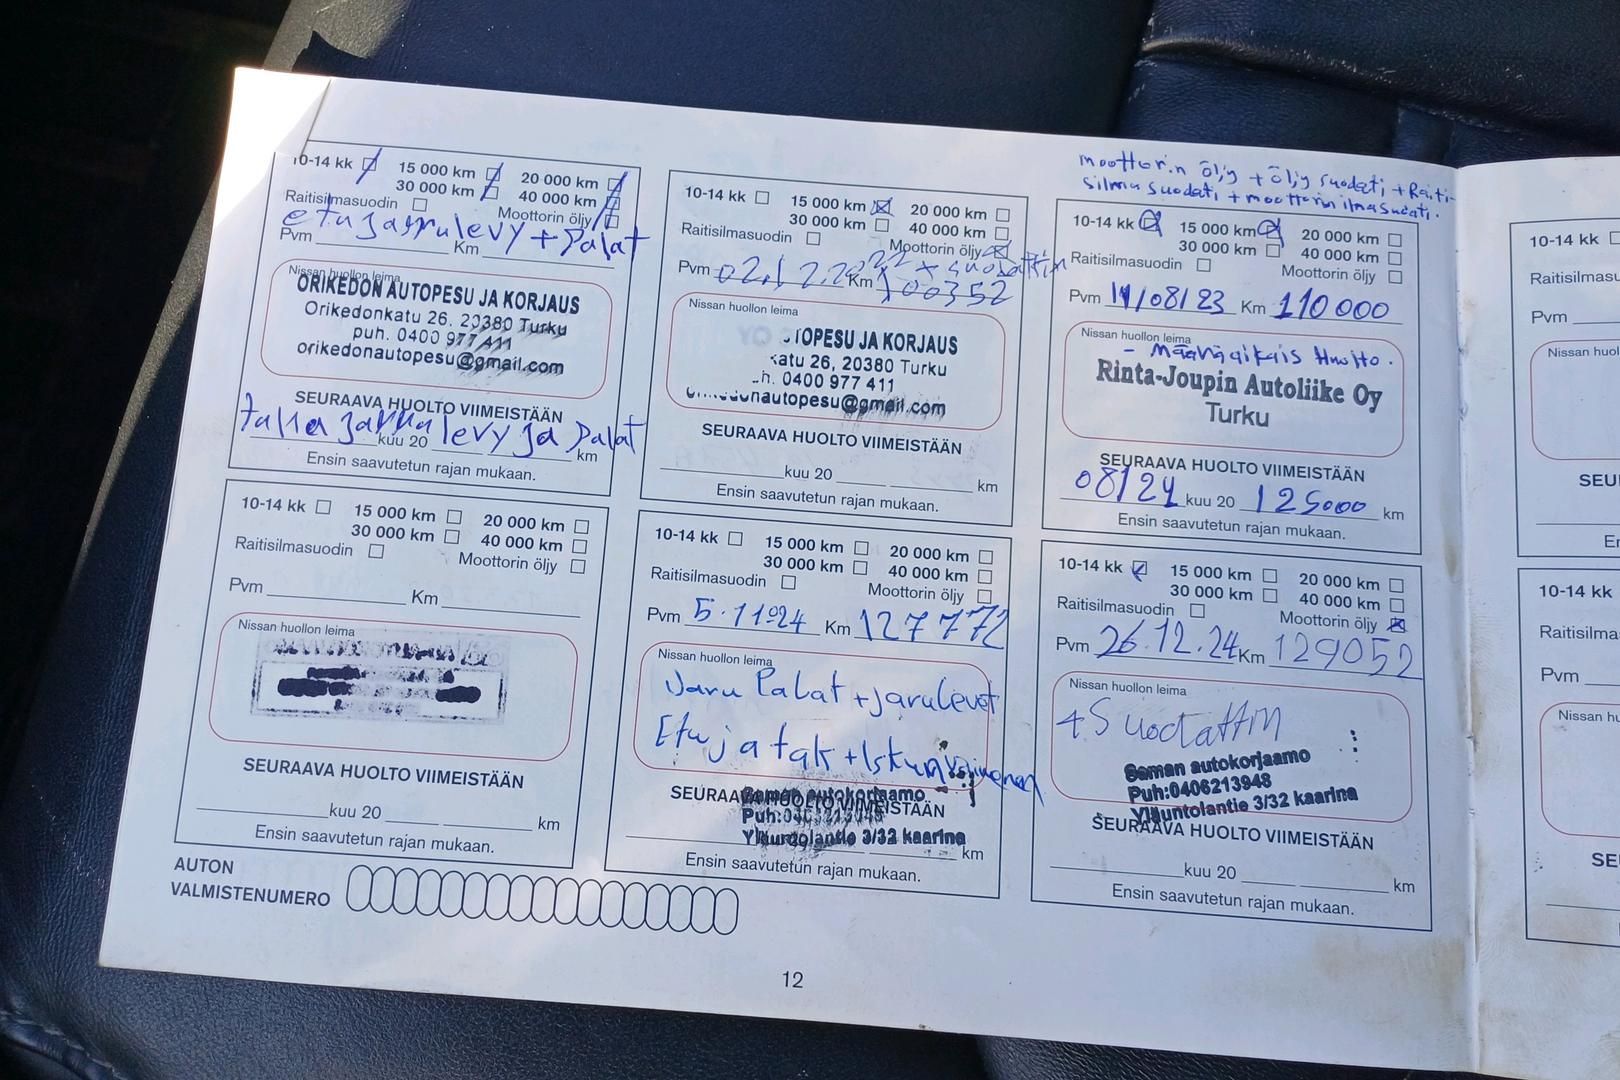 10-14 kk 15 000 km 20 000 km
30 000 km 40 000 km
Raitisilmasuodin Moottorin öljy
etujarrulevy + Palat
Pvm Km
Nissan huollon leima
ORIKEDON AUTOPESU JA KORJAUS
Orikedonkatu 26, 20380 Turku
puh. 0400 977 411
orikedonautopesu@gmail.com
SEURAAVA HUOLTO VIIMEISTÄÄN
taka jarrulevy ja Palat
kuu 20 km
Ensin saavutetun rajan mukaan.
10-14 kk 15 000 km 20 000 km
30 000 km 40 000 km
Raitisilmasuodin Moottorin öljy
Pvm 02.12.2022 + suodattim
Km 100352
Nissan huollon leima
TOPESU JA KORJAUS
katu 26, 20380 Turku
h. 0400 977 411
onautopesu@gmail.com
SEURAAVA HUOLTO VIIMEISTÄÄN
kuu 20 km
Ensin saavutetun rajan mukaan.
moottorin öljy + öljy suodati + Raiti-
silma suodati + moottorin ilmasudati.
10-14 kk 15 000 km 20 000 km
30 000 km 40 000 km
Raitisilmasuodin Moottorin öljy
Pvm 11/08/23 Km 110 000
Nissan huollon leima
- määräaikais Huolto.
Rinta-Joupin Autoliike Oy
Turku
SEURAAVA HUOLTO VIIMEISTÄÄN
08/24 kuu 20 125000 km
Ensin saavutetun rajan mukaan.
10-14 kk 15 000 km 20 000 km
30 000 km 40 000 km
Raitisilmasuodin Moottorin öljy
Pvm Km
Nissan huollon leima
SEURAAVA HUOLTO VIIMEISTÄÄN
kuu 20 km
Ensin saavutetun rajan mukaan.
10-14 kk 15 000 km 20 000 km
30 000 km 40 000 km
Raitisilmasuodin Moottorin öljy
Pvm 5.11.24 Km 127 772
Nissan huollon leima
Jaru Palat + jarulevet
Etu ja tak + Iskunvaimenen
SEURAAVA HUOLTO VIIMEISTÄÄN
Saman autokorjaamo
Puh:0406213948
Yläuntolantie 3/32 kaarina
km
Ensin saavutetun rajan mukaan.
10-14 kk 15 000 km 20 000 km
30 000 km 40 000 km
Raitisilmasuodin Moottorin öljy
Pvm 26.12.24 Km 129052
Nissan huollon leima
+ Suodattin
Saman autokorjaamo
Puh:0406213948
Yläuntolantie 3/32 kaarina
SEURAAVA HUOLTO VIIMEISTÄÄN
kuu 20 km
Ensin saavutetun rajan mukaan.
AUTON
VALMISTENUMERO
12
10-14 kk
Raitisilmasu
Pvm
Nissan huol
SEU
10-14 kk
Raitisilmasu
Pvm
Nissan hu
SE